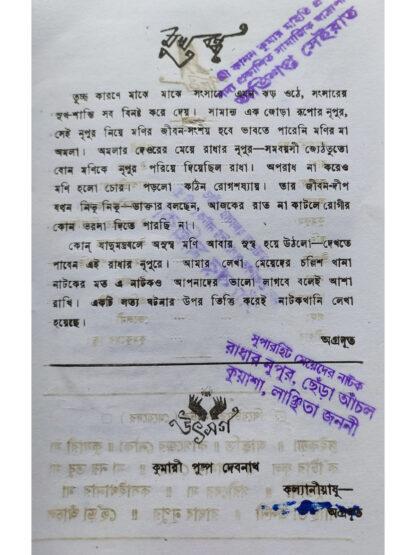 মুখবন্ধ
শ্রী কানন কুমার মাইতি
প্রকাশিত সামাজিক যাত্রাপালা
অভিশপ্ত সেইরাত
তুচ্ছ কারণে মাঝে মাঝে সংসারে এমন ঝড় ওঠে, সংসারের
সুখ-শান্তি সব বিনষ্ট করে দেয়। সামান্য এক জোড়া রূপোর নূপুর,
সেই নূপুর নিয়ে মণির জীবন-সংশয় হবে ভাবতে পারেনি মণির মা
অমলা। অমলার দেওরের মেয়ে রাধার নূপুর—সমবয়সী জ্যেঠতুতো
বোন মণিকে নূপুর পরিয়ে দিয়েছিল রাধা। অপরাধ না করেও
মণি হলো চোর। পড়লো কঠিন রোগশয্যায়। তার জীবন-দীপ
যখন নিভু নিভু—ডাক্তার বলছেন, আজকের রাত না কাটলে রোগীর
কোন ভরসা দিতে পারছি না।
কোন্ যাদুমন্ত্রবলে অসুস্থ মণি আবার সুস্থ হয়ে উঠলো—দেখতে
পাবেন এই রাধার নূপুরে। আমার লেখা মেয়েদের চল্লিশ খানা
নাটকের মত এ নাটকও আপনাদের ভালো লাগবে বলেই আশা
রাখি। একটি সত্য ঘটনার উপর ভিত্তি করেই নাটকখানি লেখা
হয়েছে।
অগ্রদূত
সুপারহিট মেয়েদের নাটক
রাধার নুপুর, ছেঁড়া আঁচল
কুয়াশা, লাঞ্ছিতা জননী
উৎসর্গ
কুমারী পুষ্প দেবনাথ
কল্যানীয়াষু—
অগ্রদূত